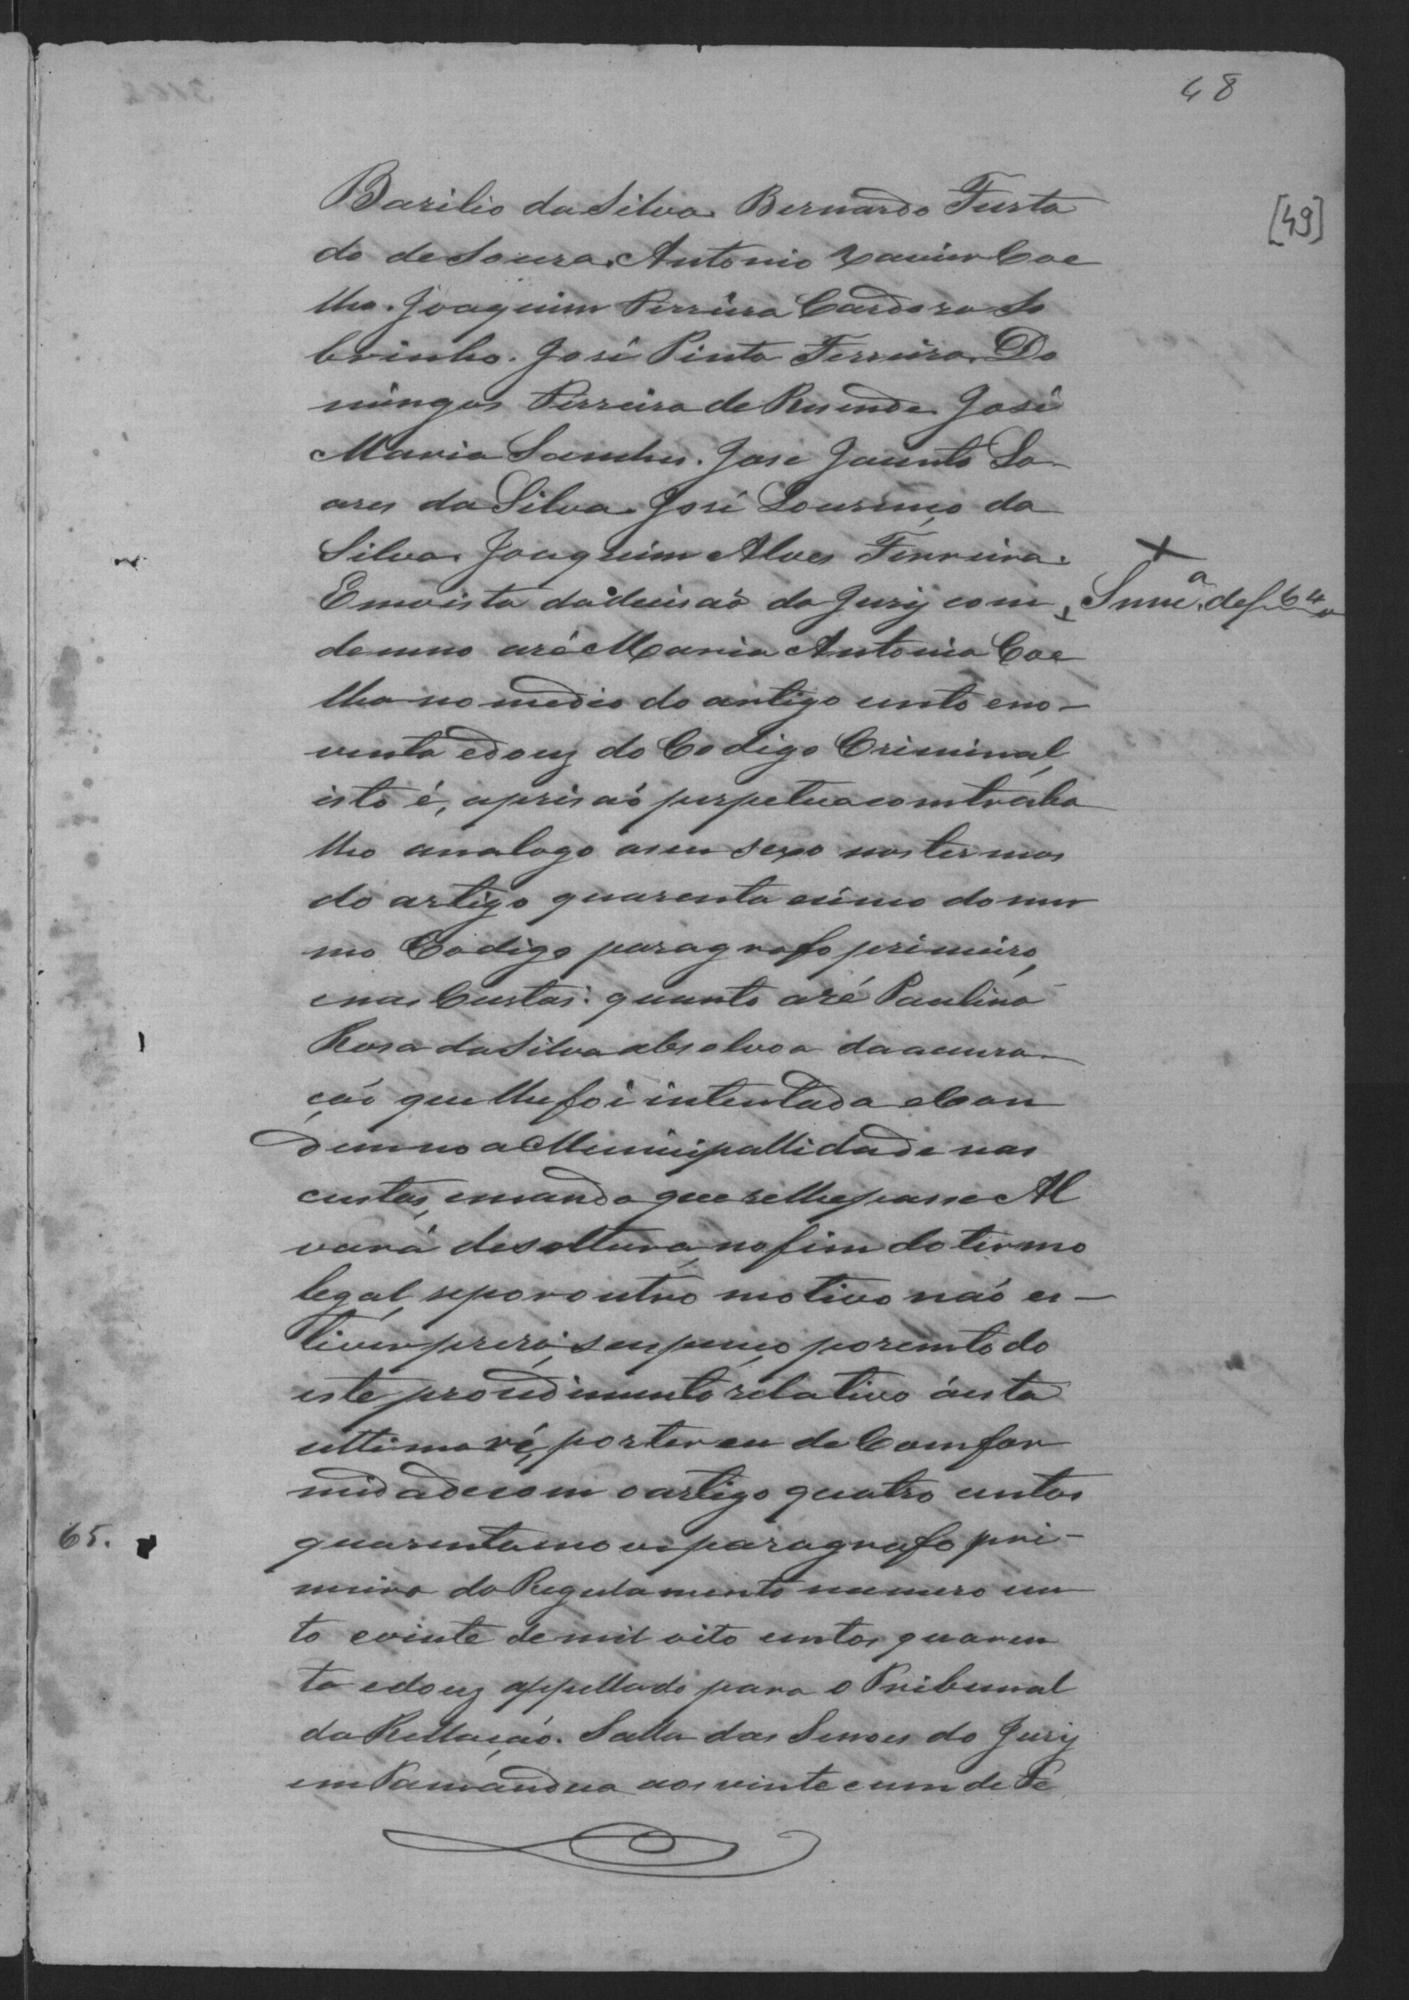 48
[49]
Basilio da Silva. Bernardo Furta
do de Souza. Antonio Xavier Coe
lho. Joaquim Ferreira Cardozo So
brinho. José Pinto Ferreira. Do
mingos Ferreira de Resende. José
Maria Sanches. Jose Jacinto So-
ares da Silva. José Lourenço da
Silva. Joaquim Alves Ferreira.
Em vista da decisaõ do Jury con
Senn.ª de f 64
demno a ré Maria Antonia Coe
lho no medio do artigo cento e no-
venta e douz do Codigo Criminal,
isto é, a prisaõ perpetua com traba
lho analogo a seu sexo nos termos
do artigo quarenta e cinco do mes
mo Codigo paragrafo primeiro,
e nas Custas: quanto a ré Paulina
Rosa da Silva absolvo a da acusa-
çaõ que lhe foi intentada e Con
demno a Municipallidade nas
custas, e mando que se lhe passe Al
vará de soltura, no fim do termo
legal, se por outro motivo naõ es-
tiver preza, suspenço porem todo
este procedimento relativo á esta
ultima ré, por ter eu de Comfor
midade com o artigo quatro centos
quarenta nove paragrafo pri-
65.
meiro do Regulamento numero cen
to e vinte de mil oito centos quaren
ta e douz appellado para o Tribunal
da Rellaçaõ. Salla das Sesoes do Jury
em Tamandua aos vinte e um de Fe